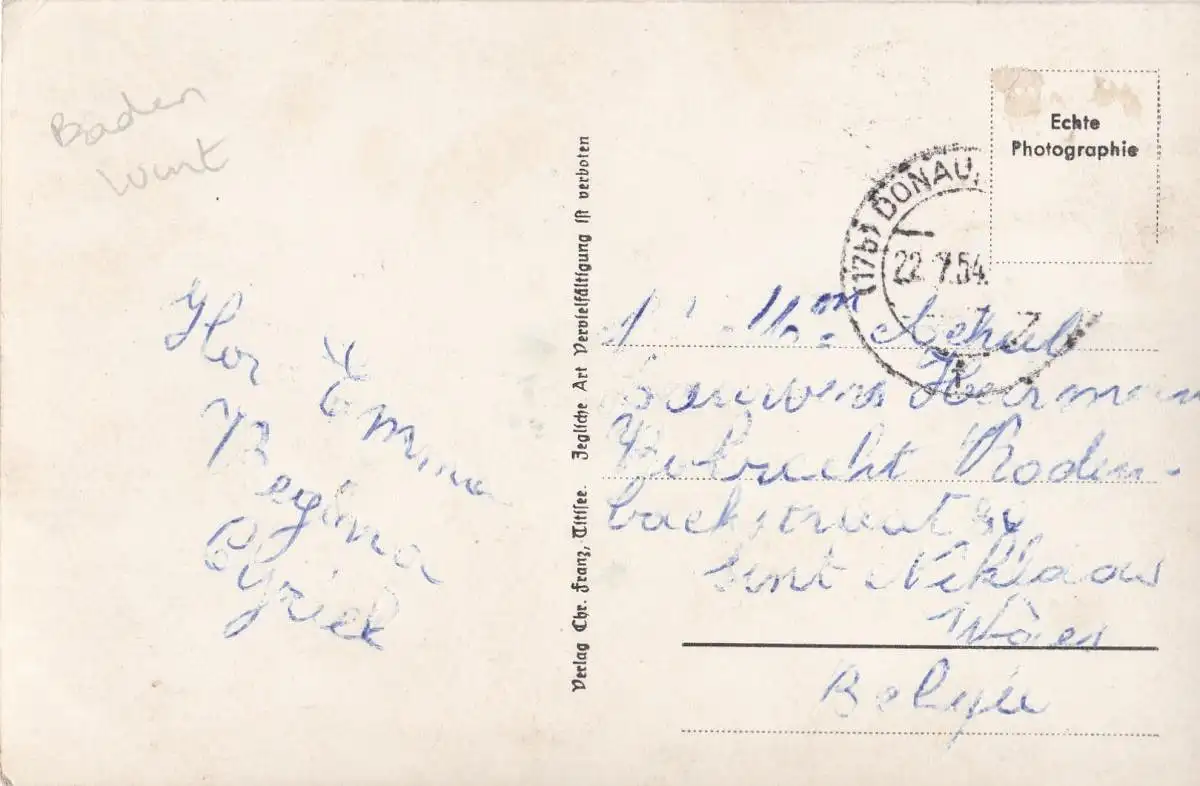 Baden
Wurt
Flor Emma
Regina
Cyriel
Verlag Chr. Franz, Titisee. Jegliche Art Vervielfältigung ist verboten
Echte
Photographie
(17b) DONAU
22.7.54
Mm
Herman
Roden-
bachstraat
Sint Niklaas
Waes
Belgie